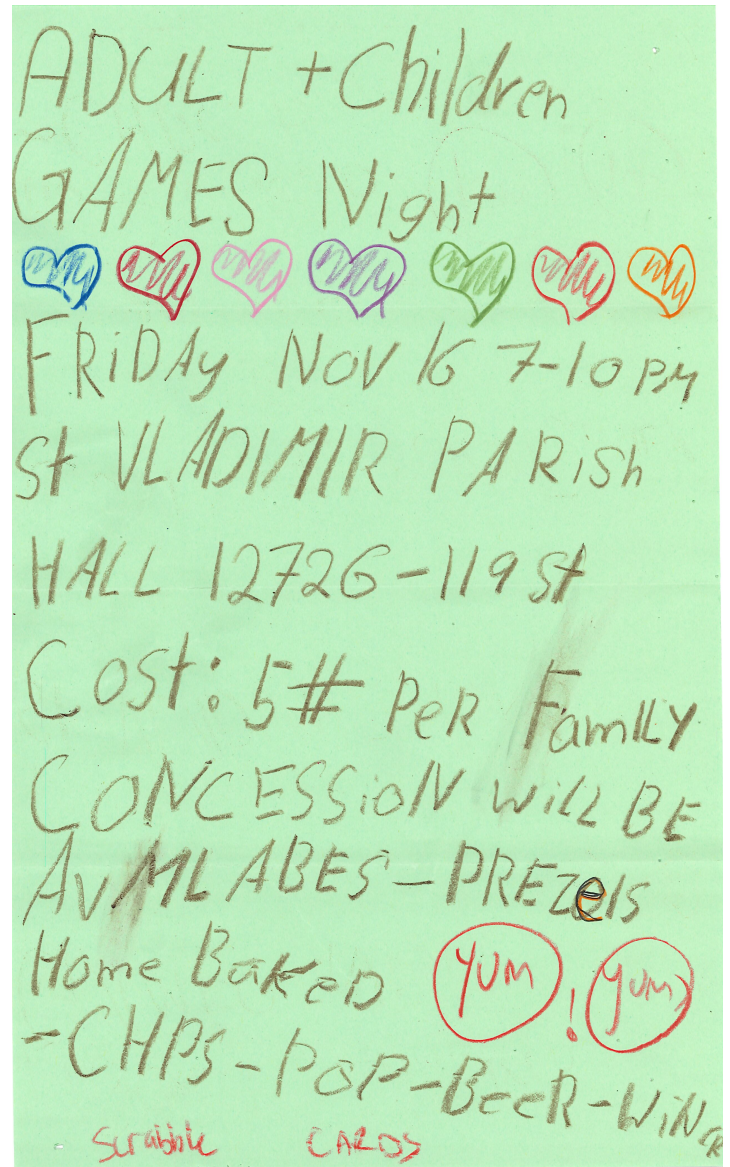 ADULT + Children
GAMES Night
FRiDAy NOV 16 7-10 PM
St VLADIMIR PARish
HALL 12726-119 St
Cost: 5# PeR FamILY
CONCESSioN wiLL BE
AvAILABES - PREZels
Home BaKeD YUM ! yum
-CHPS-PoP-BeeR-WiNe
Scrabble CARDS